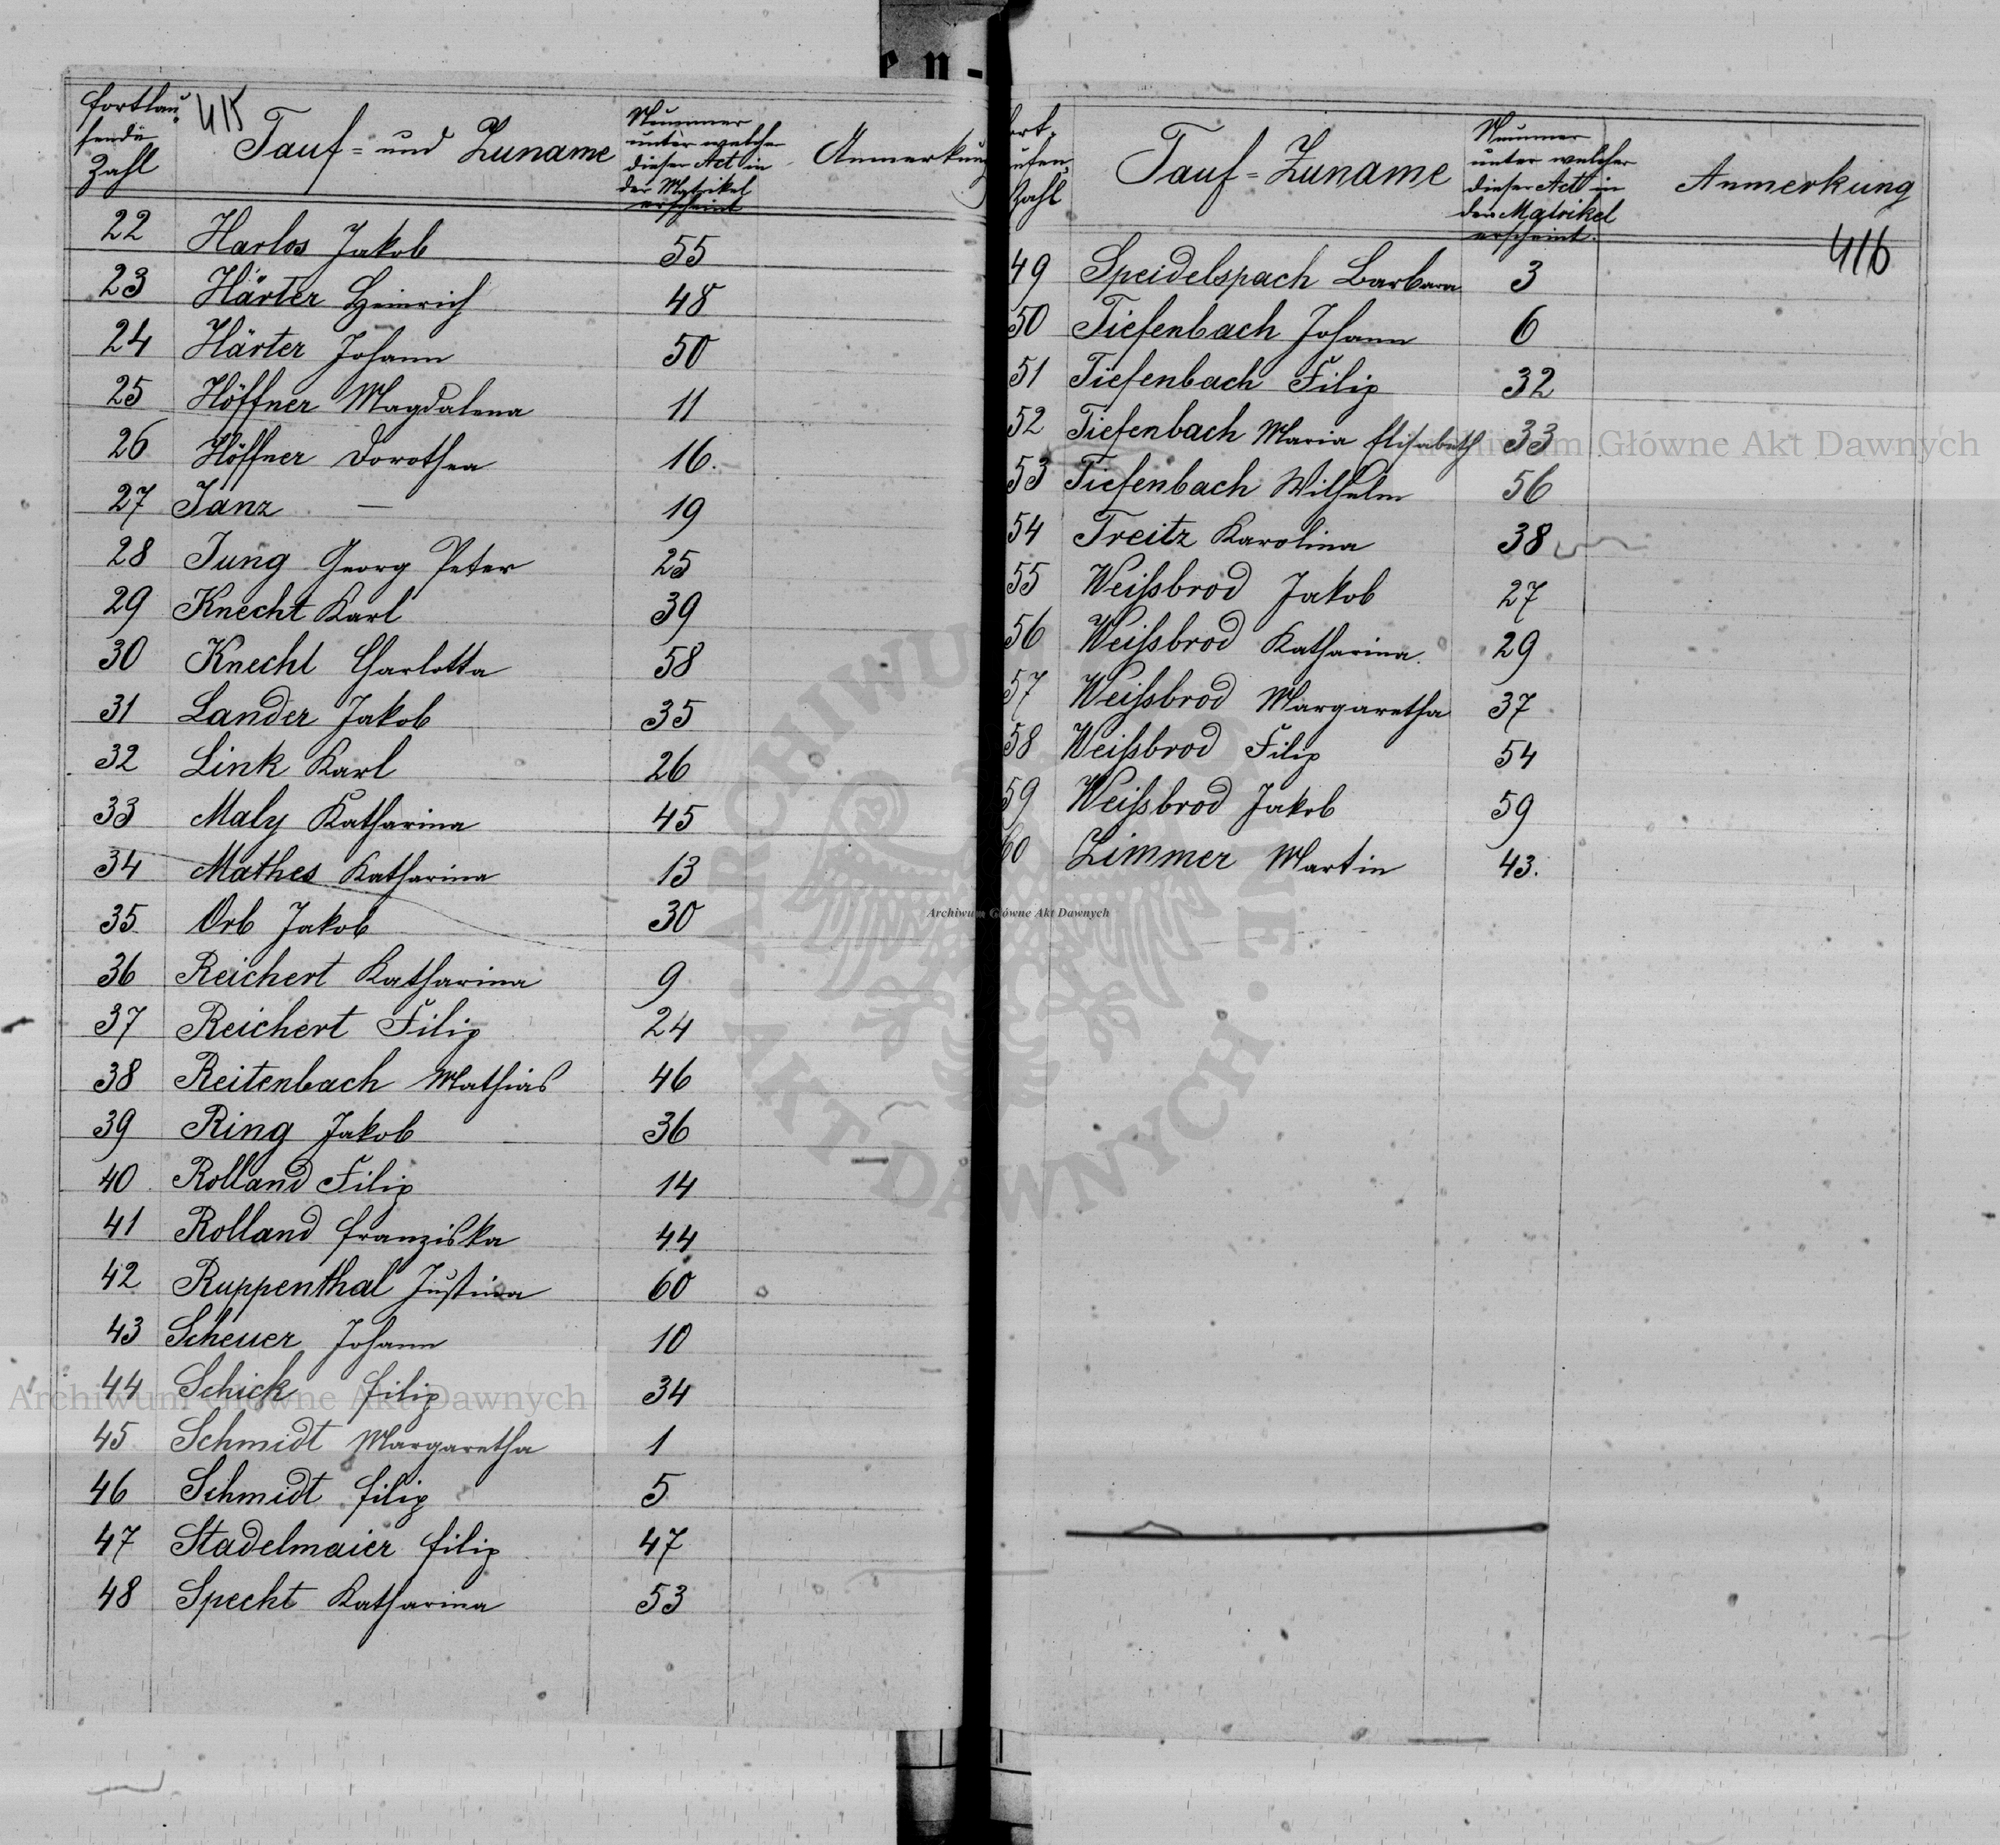 en-
415
fortlau-
fende
Zahl
Tauf- und Zuname
Nummer
unter welcher
dieser Act in
der Matrikel
erscheint
Anmerkung
22 Harlos Jakob 55
23 Härter Heinrich 48
24 Härter Johann 50
25 Höffner Magdalena 11
26 Höffner Dorothea 16.
27 Janz — 19
28 Jung Georg Peter 25
29 Knecht Karl 39
30 Knecht Charlotta 58
31 Lander Jakob 35
32 Link Karl 26
33 Maly Katharina 45
34 Mathes Katharina 13
35 Orb Jakob 30
36 Reichert Katharina 9
37 Reichert Filip 24
38 Reitenbach Mathias 46
39 Ring Jakob 36
40 Rolland Filip 14
41 Rolland Franziska 44
42 Ruppenthal Justina 60
43 Scheuer Johann 10
44 Schick Filip 34
45 Schmidt Margaretha 1
46 Schmidt Filip 5
47 Stadelmaier Filip 47
48 Specht Katharina 53
ort-
ufen
Zahl
Tauf-Zuname
Nummer
unter welcher
dieser Act in
der Matrikel
erscheint.
Anmerkung
416
49 Speidelspach Barbara 3
50 Tiefenbach Johann 6
51 Tiefenbach Filip 32
52 Tiefenbach Maria Elisabeth 33
53 Tiefenbach Wilhelm 56
54 Treitz Karolina 38
55 Weißbrod Jakob 27
56 Weißbrod Katharina. 29
57 Weißbrod Margaretha 37
58 Weißbrod Filip 54
59 Weißbrod Jakob 59
60 Zimmer Martin 43.
Archiwum Główne Akt Dawnych
Archiwum Główne Akt Dawnych
Archiwum Główne Akt Dawnych
ARCHIWUM GŁÓWNE · AKT DAWNYCH ·